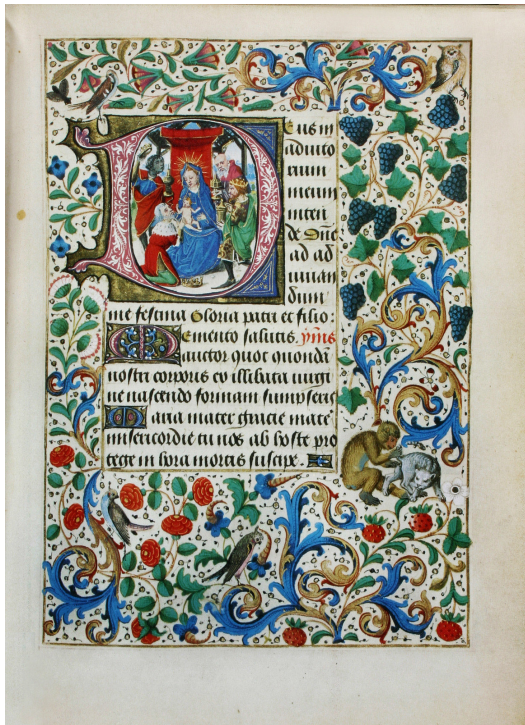 Deus in
adiuto
rium
meum
inten
de Dne
ad ad
iuuan
dum
me festina Gloria patri et filio:
Memento salutis. ymis
auctor quod quonda
nostri corporis ex illibata uirgi
ne nascendo formam sumpseris
Maria mater gracie mater
misericordie tu nos ab hoste pro
tege in hora mortis suscipe.